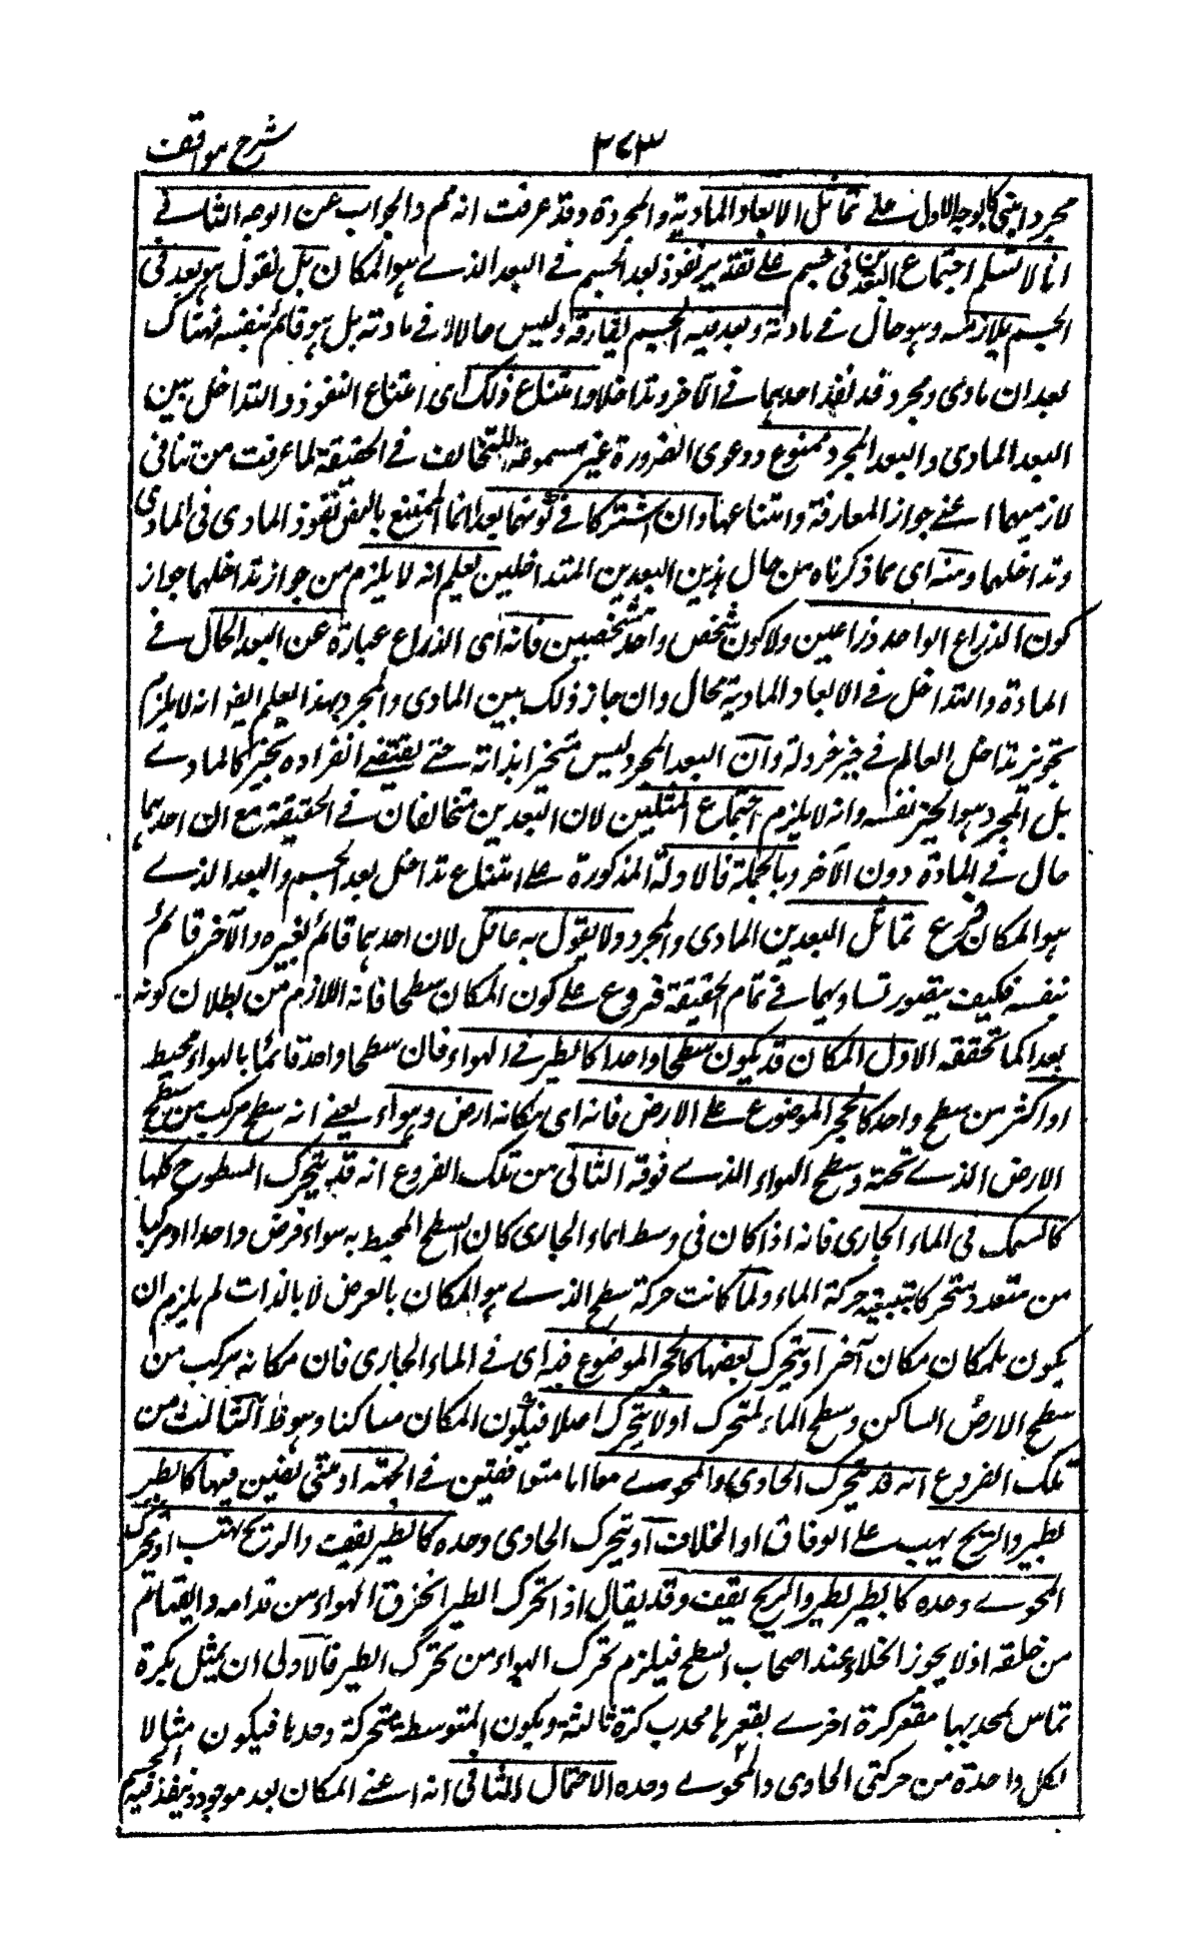 شرح مواقف
٣٤٣
مجردا مبنى كالوجه الاول على تماثل الابعاد المادية والمجردة وقد عرفت انه مم والجواب عن الوجه الثانى
انا لا نسلم اجتماع البعدين فى جسم على تقدير نفوذ بعد الجسم فى البعد الذى هو المكان بل نقول هو بعد فى
الجسم يلازمه وهو حال فى مادته وبعد فيه الجسم يفارقه وليس حالا فى مادته بل هو قائم بنفسه فهناك
بعدان مادى ومجرد قد نفذ احدهما فى الآخر وتداخلا وامتناع ذلك اى امتناع النفوذ والتداخل بين
البعد المادى والبعد المجرد ممنوع ودعوى الضرورة غير مسموعة للتخالف فى الحقيقة لما عرفت من تنافى
لازميهما اعنى جواز المفارقة وامتناعها وان اشتركا فى كونهما بعدا انما الممتنع بالضرورة نفوذ المادى فى المادى
وتداخلهما ومنه اى مما ذكرناه من حال هذين البعدين المتداخلين يعلم انه لا يلزم من جواز تداخلهما جواز
كون الذراع الواحد ذراعين ولا كون شخص واحد شخصين فانه اى الذراع عبارة عن البعد الحال فى
المادة والتداخل فى الابعاد المادية محال وان جاز ذلك بين المادى والمجرد بهذا يعلم ايضا انه لا يلزم
تجويز تداخل العالم فى حيز خردلة وان البعد المجرد ليس متحيزا بذاته حتى يقتضى انفراده بحيز كالمادى
بل المجرد هو الحيز نفسه وانه لا يلزم اجتماع المثلين لان البعدين متخالفان فى الحقيقة مع ان احدهما
حال فى المادة دون الآخر وبالجملة فالادلة المذكورة على امتناع تداخل بعد الجسم والبعد الذى
هو المكان فرع تماثل البعدين المادى والمجرد ولا يقول به عاقل لان احدهما قائم بغيره والآخر قائم
بنفسه فكيف يتصور تساويهما فى تمام الحقيقة فروع على كون المكان سطحا فانه اللازم من بطلان كونه
بعدا كما تحققه الاول المكان قد يكون سطحا واحدا كالطير فى الهواء فان سطحا واحدا قائما بالهواء محيط
او اكثر من سطح واحد كالحجر الموضوع على الارض فانه اى مكانه ارض وهواء يعنى انه سطح مركب من سطح
الارض الذى تحته وسطح الهواء الذى فوقه الثانى من تلك الفروع انه قد يتحرك السطوح كلها
كالسمك فى الماء الجارى فانه اذا كان فى وسط الماء الجارى كان السطح المحيط به سواء فرض واحدا او مركبا
من متعدد متحركا بتبعية حركة الماء ولما كانت حركة سطح الذى هو المكان بالعرض لا بالذات لم يلزم ان
يكون للمكان مكان آخر او يتحرك بعضها كالحجر الموضوع فيه اى فى الماء الجارى فان مكانه مركب من
سطح الارض الساكن وسطح الماء المتحرك اولا يتحرك اصلا فيكون المكان ساكنا وهو ظ الثالث من
تلك الفروع انه قد يتحرك الحاوى والمحوى معا اما متوافقتين فى الجهة او متخالفتين فيها كالطير
يطير والريح يهب على الوفاق او الخلاف او يتحرك الحاوى وحده كالطير يقف والريح تهب او يتحرك
المحوى وحده كالطير يطير والريح يقف وقد يقال اذا تحرك الطير انخرق الهواء من قدامه والتيام
من خلفه اذ لا يجوز الخلاء عند اصحاب السطح فيلزم تحرك الهواء من تحرك الطير فالاولى ان يمثل بكرة
تماس بمحدبها مقعر كرة اخرى بمقعرها محدب كرة ثالثة ويكون المتوسطة متحركة وحدها فيكون مثالا
لكل واحدة من حركتى الحاوى والمحوى وحده الاحتمال الثانى انه اعنى المكان بعد موجود ينفذ فيه الجسم